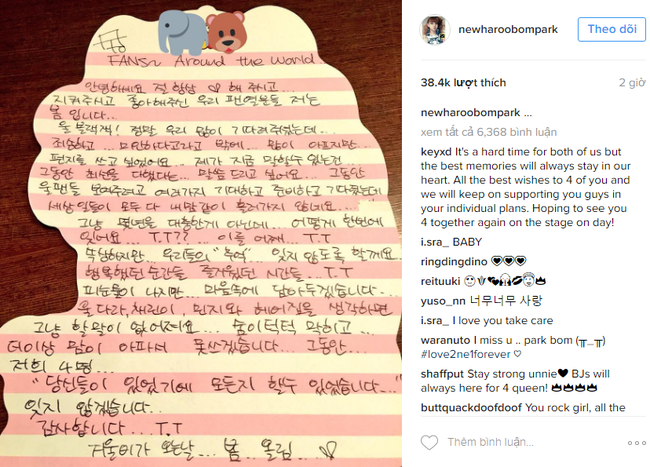 FANS~ Around the world
안녕하세요 절 항상 ♡ 해 주시고...
지켜주시고 좋아해주신 우리 팬여러분들 저는
봄 입니다...
울 블랙잭! 정말 우리 많이 기다려주셨는데...
죄송하고... 미안하다고라고 밖에... 맘이 아프지만...
편지를 쓰고 싶었어요... 제가 지금 말할수 있는건...
그동안 최선을 다했다는... 말씀 드리고 싶어요... 그동안
울팬들 보여주려고 여러가지 기대하고 준비하고 기다렸는데
세상일들이 모두 다 내맘같이 흘러가지 않네요...
그냥 몇년을 대충한게 아닌데... 어떻게 한번에
잊어요... T.T?? ... 이를 어째... T.T
속상하지만 우리들의 "추억"... 잊지 않도록 할께요...
행복했던 순간들 즐거웠던 시간들... T.T
피눈물이 나지만... 마음속에 담아두겠습니다...
울 다라, 채린이, 민지와 헤어짐을 생각하면
그냥 할 말이 없어져요... 숨이턱턱 막히고...
더이상 맘이 아파서 못쓰겠습니다... 그동안...
저희 4명...
"당신들이 있었기에 모든지 할수 있었습니다..."
잊지 않겠습니다...
감사합니다... T.T
겨울비가 오는날... 봄 올림... ♡
newharoobompark
Theo dõi
38.4k lượt thích
2 giờ
newharoobompark ...
xem tất cả 6,368 bình luận
keyxd It's a hard time for both of us but
the best memories will always stay in our
heart. All the best wishes to 4 of you and
we will keep on supporting you guys in
your individual plans. Hoping to see you
4 together again on the stage on day!
i.sra_ BABY
ringdingdino
reituuki
yuso_nn 너무너무 사랑
i.sra_ I love you take care
waranuto I miss u .. park bom (╥_╥)
#love2ne1forever ♡
shaffput Stay strong unnie♥ BJs will
always here for 4 queen!
buttquackdoofdoof You rock girl, all the
Thêm bình luận...